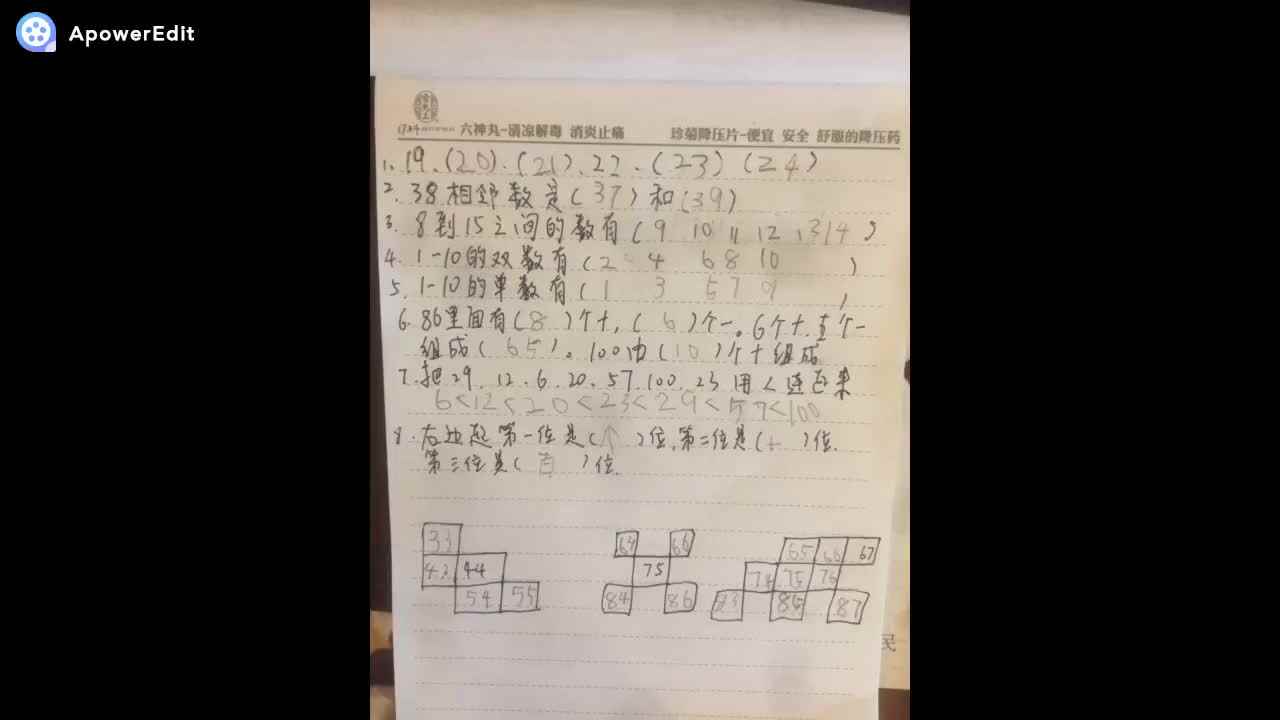 ApowerEdit
六神丸-清凉解毒 消炎止痛 珍菊降压片-便宜 安全 舒服的降压药
1. 19、(20)、(21)、22、(23) (24)
2. 38相邻数是(37)和(39)
3. 8到15之间的数有(9 10 11 12 13 14)
4. 1-10的双数有(2 4 6 8 10)
5. 1-10的单数有(1 3 5 7 9)
6. 86里面有(8)个十,(6)个一。6个十、五个一
组成(65)。100由(10)个十组成
7. 把29、12、6、20、57、100、23用<连起来
6<12<20<23<29<57<100
8. 右边起第一位是(个)位,第二位是(十)位.
第三位是(百)位.
33 64 66 65 66 67
43 44 75 74 75 76
54 55 84 86 83 85 87
民